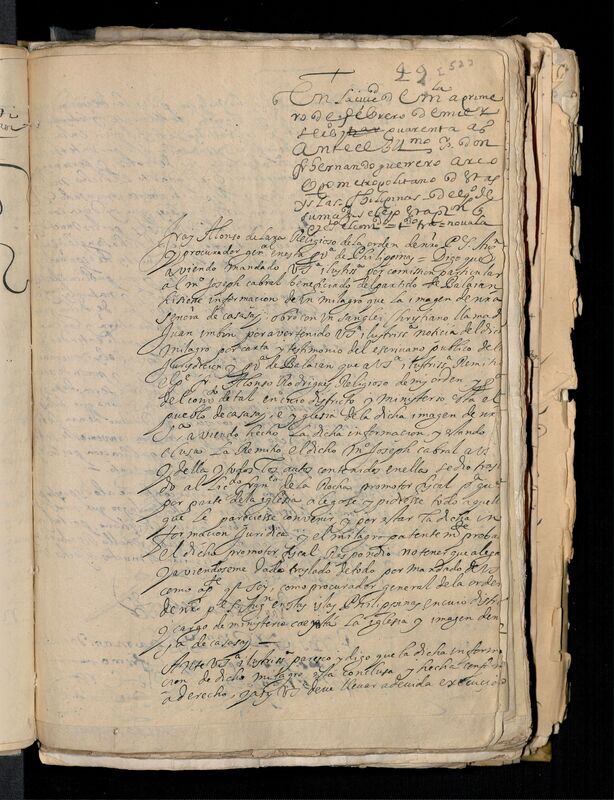 49 2523
En la ciud de mla a prime
ro de febrero de mill y
seis quarenta as
Ante el Illmo Sr don
fr hernando guerrero arço
obpo metropolitano de estas
yslas Philipinas
Fray Alonso de Lara Religioso de la orden de nro Pe S. Augn
y procurador genl en esta de Philippinas = Digo que
aviendo mandado VSa ilustrissa por comission particular
al mo Joseph cabral beneficiado del partido de Balaian
hisiese informacion de un milagro que la imagen de nra
señora de casasay obró con un sanglei christiano llamado
Juan imbin por aver tenido VSa ilustrissa noticia del dicho
milagro por carta y testimonio del escrivano publico de la
Jurisdicion de Balaian que a VSa ilustrissa Remitio
el pe fr Alonso Rodrigues Religioso de my orden
del de tal en cuio districto y ministerio esta el
pueblo de casasay, e yglesia de la dicha imagen de nra
sra aviendo hecho la dicha informacion y estando
clusa La Remitio el dicho mo Joseph cabral a VS
y della y vistos Los autos contenidos en ella se dio tras
do al Licdo de la Rocha promotor fiscal pa que
por parte de la iglesia alegase y pidiesse todo aquello
que le pareciesse convenir y por estar la dicha in
formacion juridica y el milagro patente mte probado
el dicho promotor fiscal Respondio no tener que alegar
y aviendoseme dado traslado de todo por mandado de VS
como a pe que soy como procurador general de la orden
de nro pe S Augn en estas yslas Philippinas en cuio distri
y cargo de ministerio cae y esta La iglesia y imagen de n
sra de casasay =
Ante VSa ilustrissa paresco y digo que la dicha informa
cion de dicho milagro esta conclusa y hecha conforme
a derecho, y assi VSa deve llevar a devida execucion